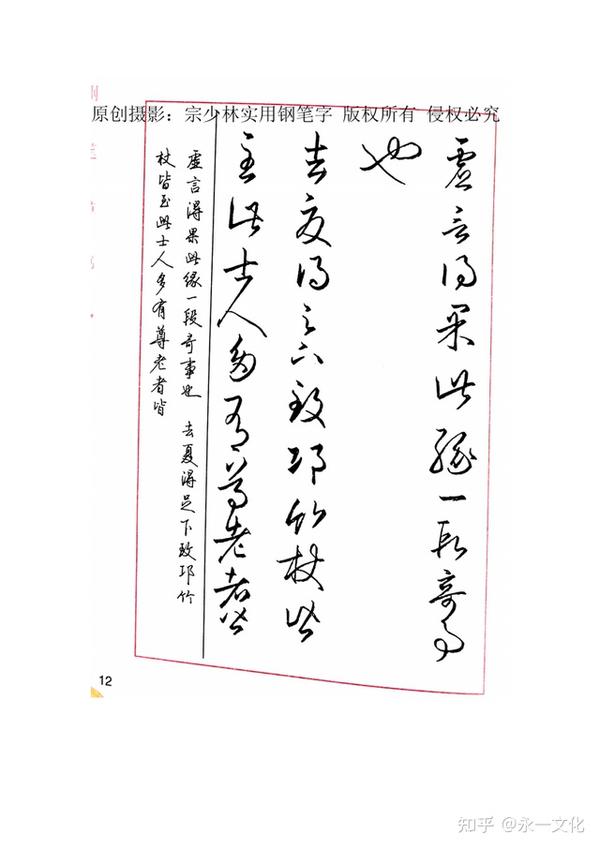 原创摄影：宗少林实用钢笔字 版权所有 侵权必究
虚言得果此缘一段奇事
也
去夏得足下致邛竹杖皆
至此士人多有尊老者皆
虚言得果此缘一段奇事也 去夏得足下致邛竹
杖皆至此士人多有尊老者皆
12
知乎 @永一文化